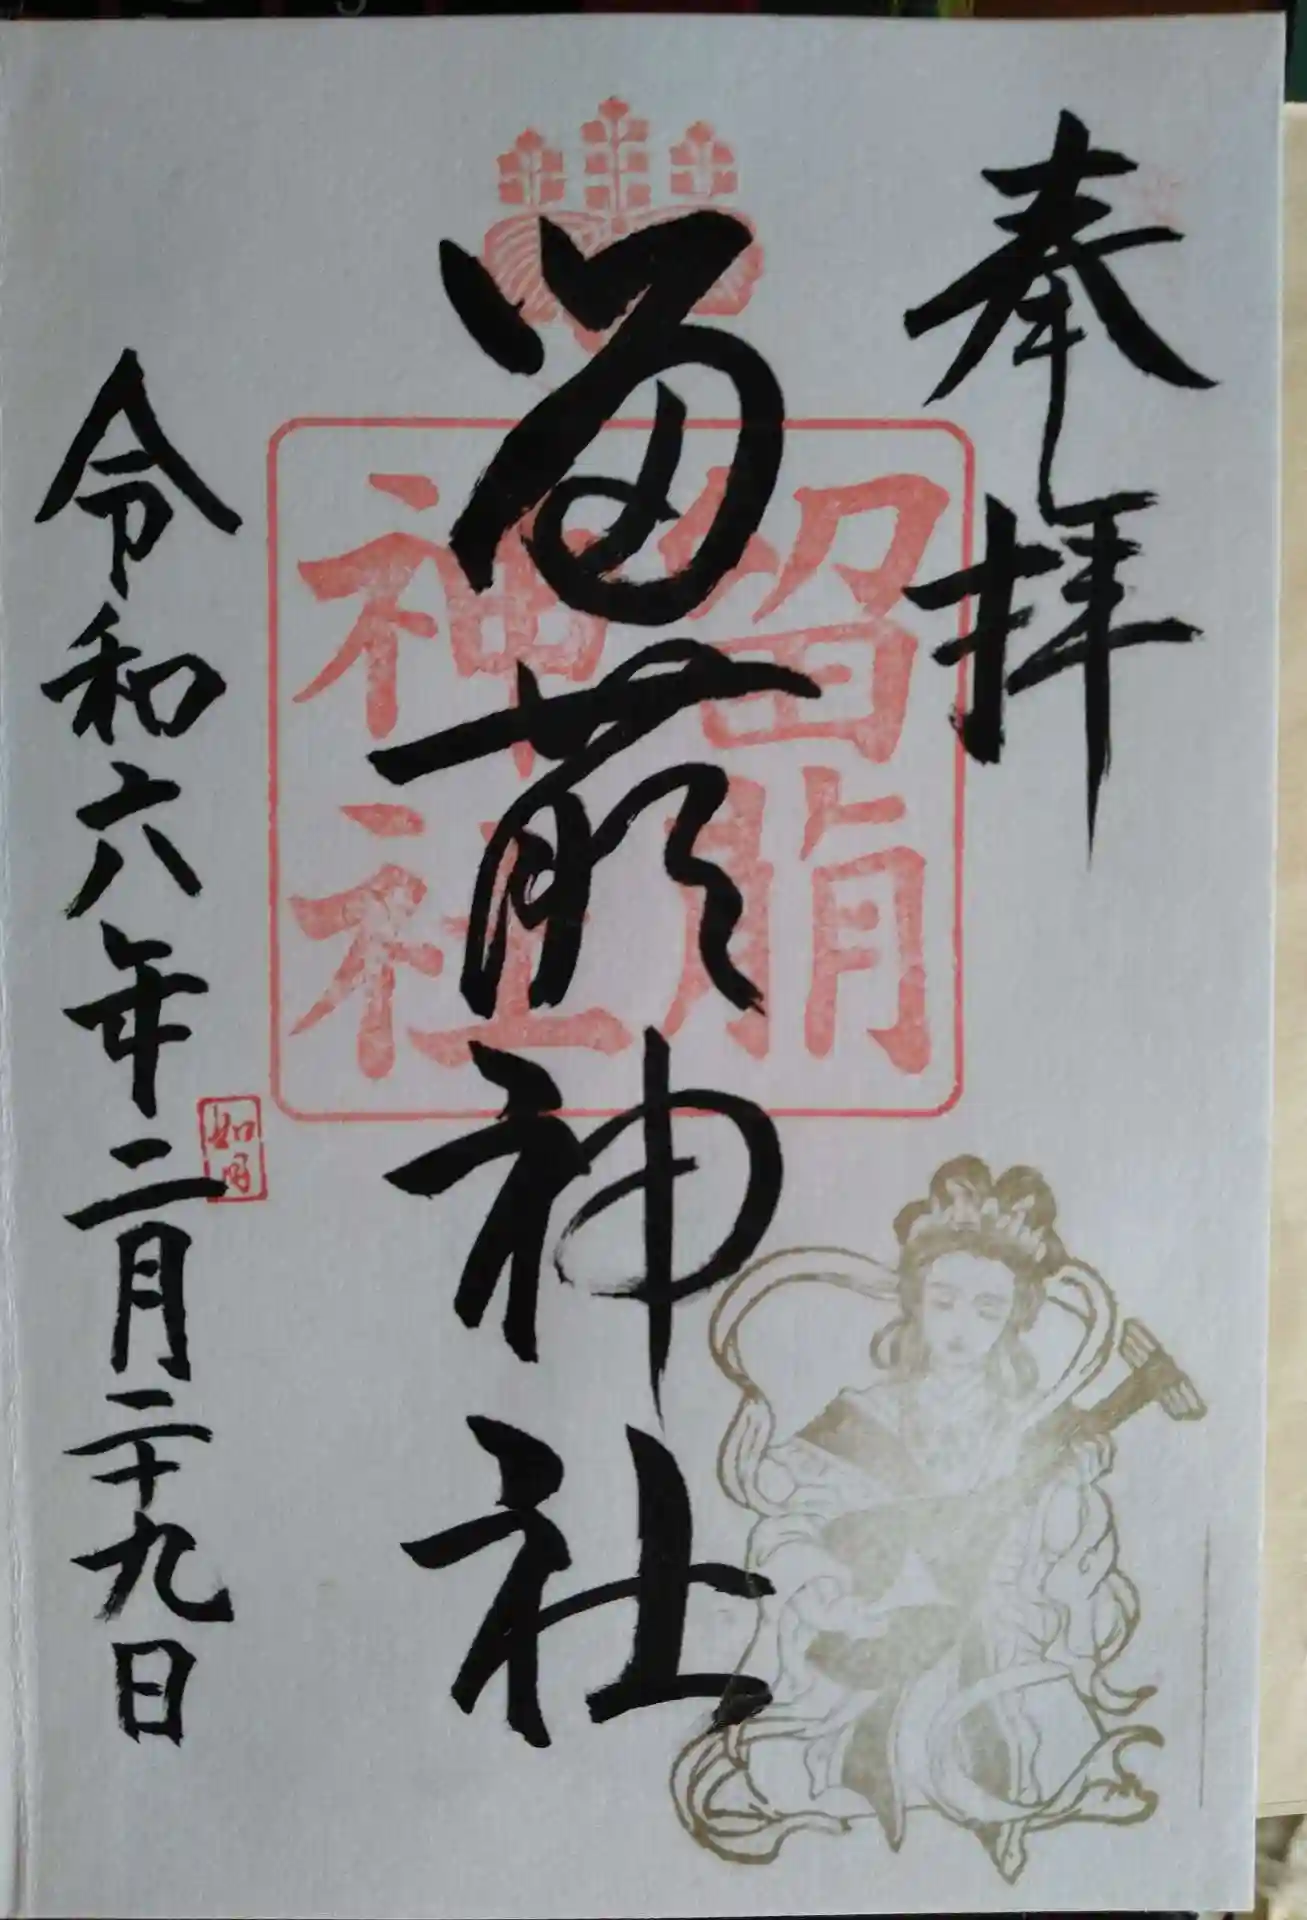 奉拝
留萠神社
留萠
神社
令和六年二月二十九日
如月